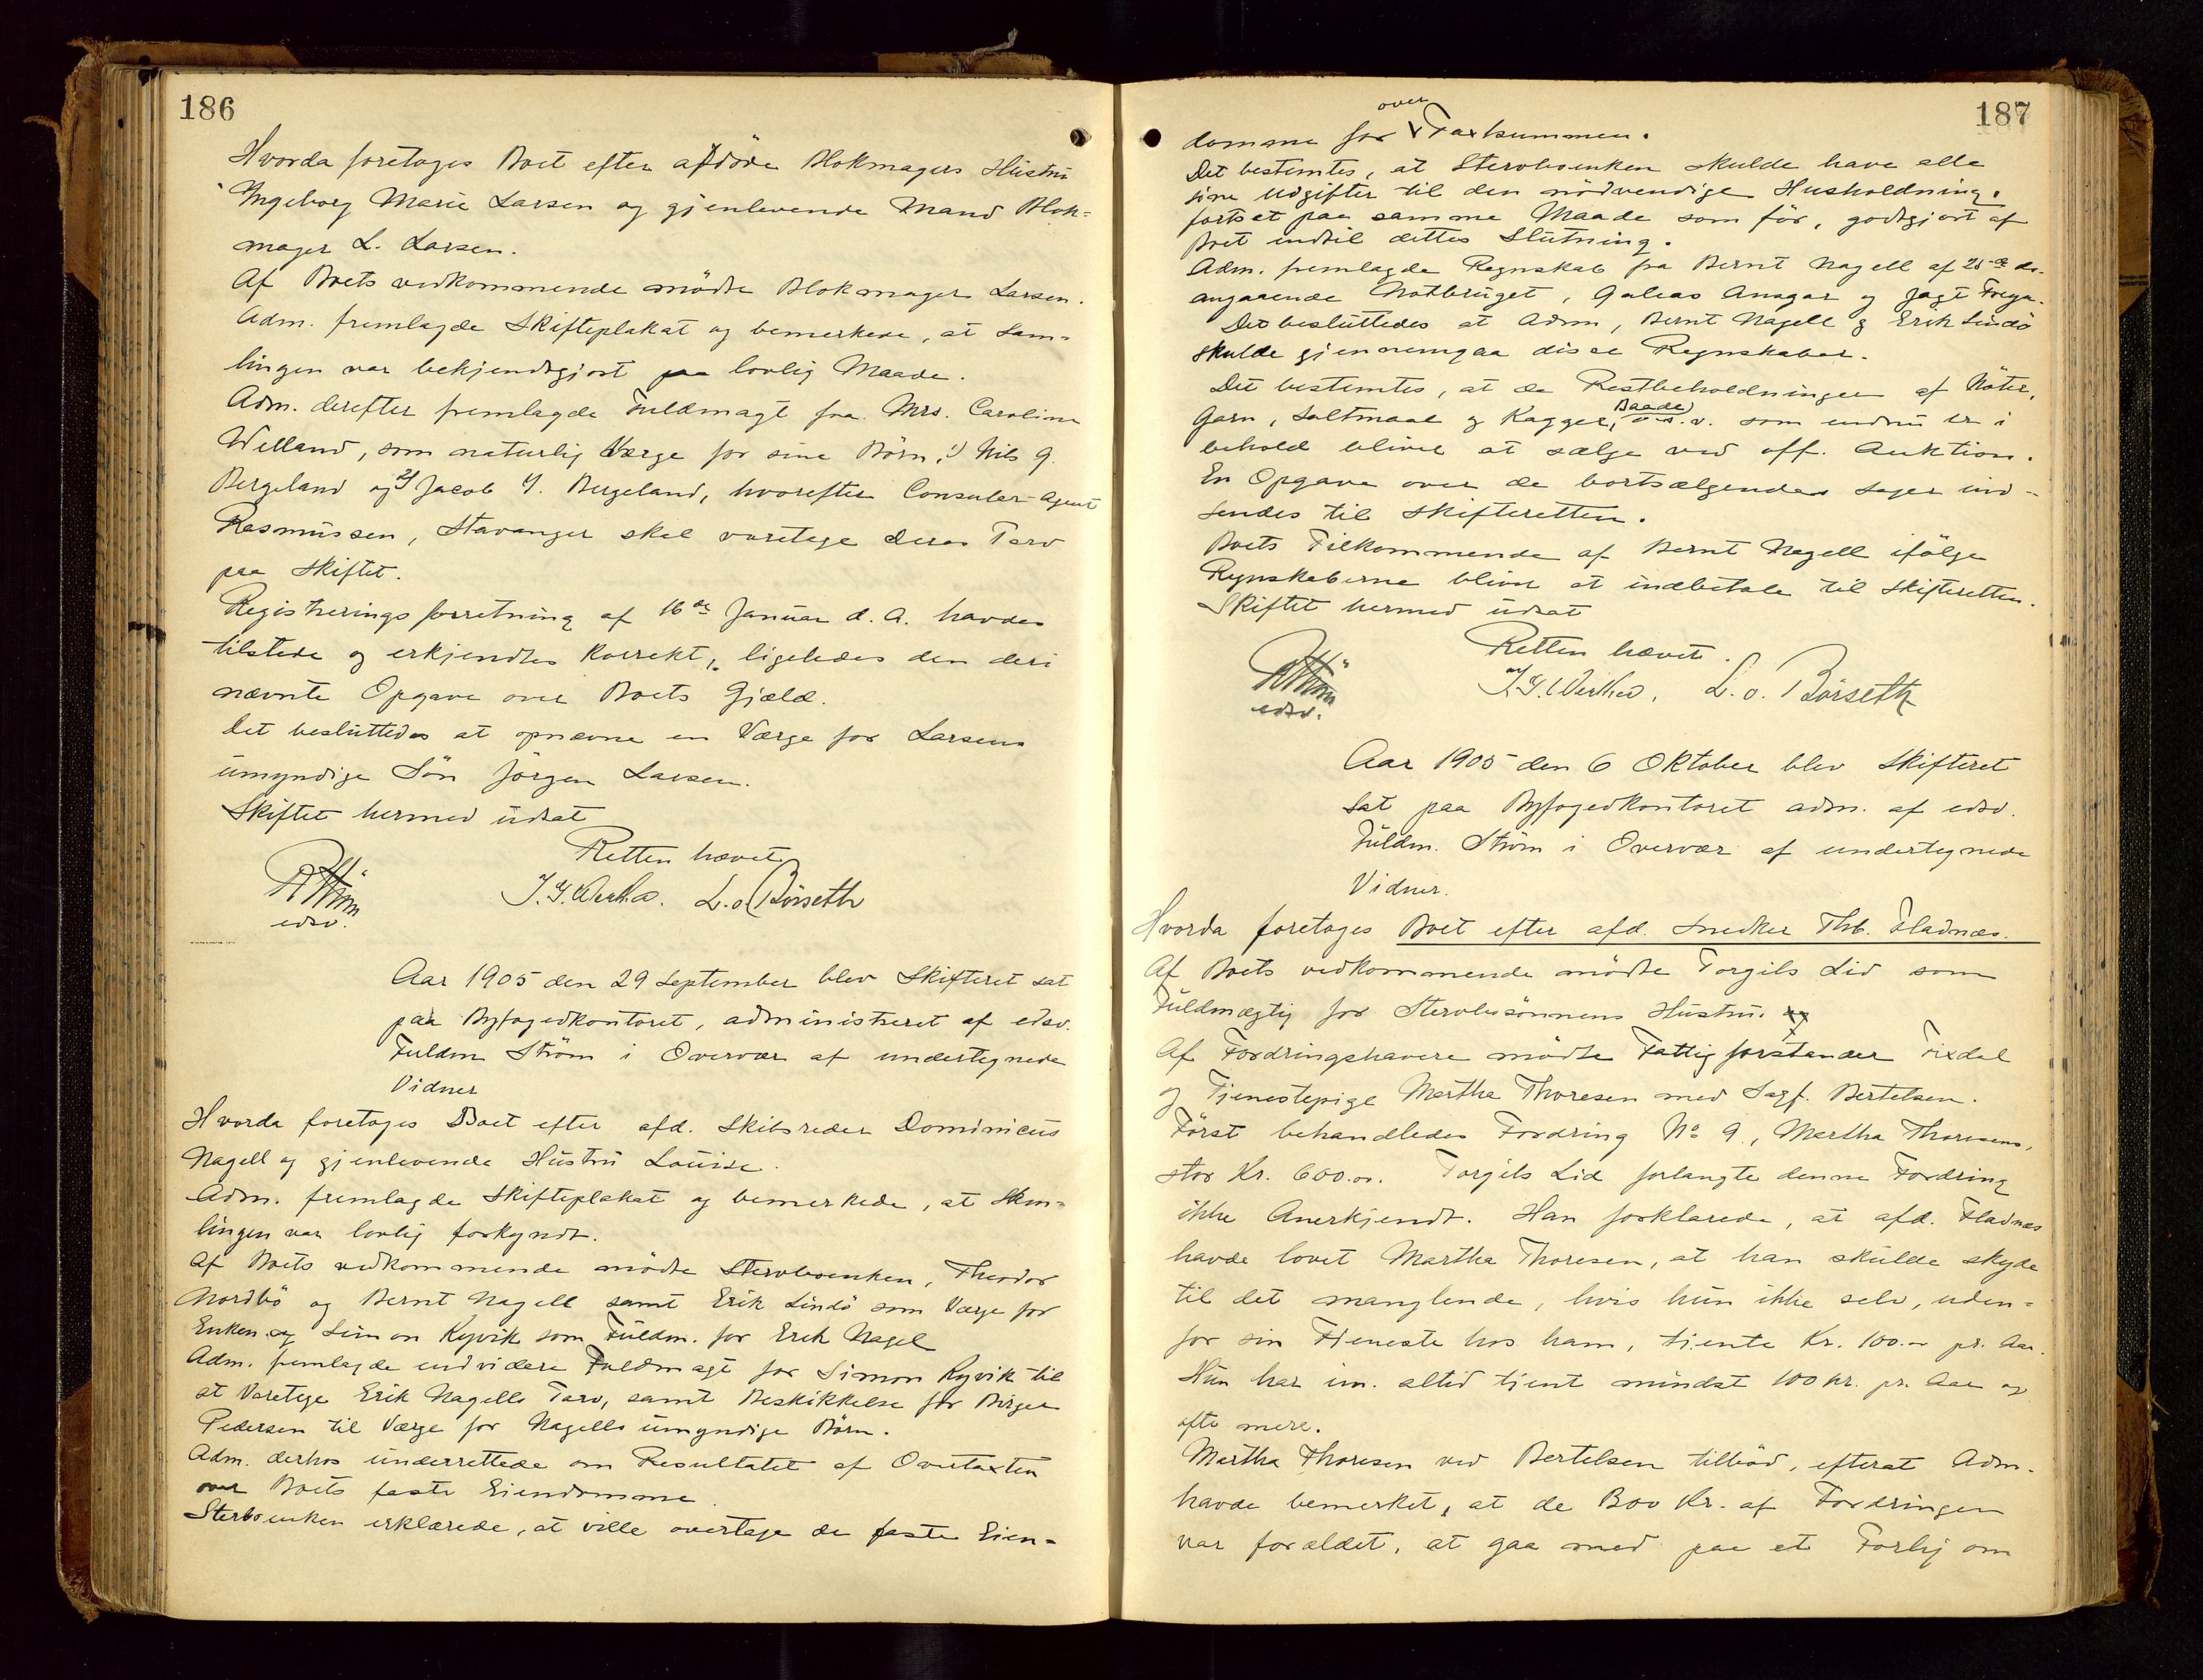 186
Hvorda foretoges Boet efter afdöde Blokmagers Hustru
Ingeborg Marie Larsen og gjenlevende Mand Blok-
mager L. Larsen.
Af Boets vedkommende mödte Blokmager Larsen.
Adm. fremlagde Skifteplakat og bemerkede, at Sam-
lingen var bekjendtgjort paa lovlig Maade.
Adm. derefter fremlagde Fuldmagt fra Mrs. Caroline
Welland, som naturlig Værge for sine Börn, 1) Nils G.
Bergeland og 2) Jacob Y. Bergeland, hvorefter Consular-Agent
Rasmussen, Stavanger skal varetage deres Tarv
paa Skiftet.
Registreringsforretning af 16de Januar d. A. havdes
tilstede og erkjendtes korrekt, ligeledes den deri
nævnte Opgave over Boets Gjæld.
Det besluttedes at opnævne en Værge for Larsens
umyndige Sön Jörgen Larsen.
Skiftet hermed udsat
Retten hævet
edsv.
L. o. Börseth
Aar 1905 den 29 September blev Skifteret sat
paa Byfogedkontoret, administreret af edsv.
Fuldm Ström i Overvær af undertegnede
Vidner
Hvorda foretoges Boet efter afd. Skibsreder Dominicus
Nagell og gjenlevende Hustru Louise.
Adm. fremlagde Skifteplakat og bemerkede, at Sam-
lingen var lovlig forkyndt.
Af Boets vedkommende mödte Sterboenken, Theodor
Nordbö og Bernt Nagell samt Erik Lindö som Værge for
Enken og Simon Ryvik som Fuldm. for Erik Nagel
Adm. fremlagde endvidere Fuldmagt for Simon Ryvik til
at varetage Erik Nagells Tarv, samt Beskikkelse for Birger
Pedersen til Værge for Nagells umyndige Börn.
Adm. derhos underrettede om Resultatet af Overtaxten
over Boets faste Eiendomme.
Sterboenken erklærede, at ville overtage de faste Eien-
187
over
domme for Taxtsummen.
Det bestemtes, at Sterboenken skulde have alle
sine Udgifter til den nödvendige Husholdning,
fortsat paa samme Maade som för, godtgjort af
Boet indtil dettes Slutning.
Adm. fremlagde Regnskab fra Bernt Nagell af 25de ds.
angaaende Notbruget, Galeas Ansgar og Jagt Freya.
Det besluttedes at Adm, Bernt Nagell & Erik Lindö
skulde gjennemgaa disse Regnskaber.
Det bestemtes, at de Restbeholdninger af Nöter,
Baade
Garn, Saltmaal og Kagger, o.s.v. som endnu er i
behold bliver at sælge ved off. Auktion.
En Opgave over de bortsælgendes Sager ind-
sendes til Skifteretten.
Boets Tilkommende af Bernt Nagell ifölge
Regnskaberne bliver at indbetale til Skifteretten.
Skiftet hermed udsat
Retten hævet.
edsv.
L. o. Börseth
Aar 1905 den 6 Oktober blev Skifteret
sat paa Byfogedkontoret adm. af edsv.
Fuldm. Ström i Overvær af undertegnede
Vidner.
Hvorda foretoges Boet efter afd. Snedker Thb. Fladnæs.
Af Boets vedkommende mödte Torgils Lid som
Fuldmægtig for Sterbusönnens Hustru.
Af Fordringshavere mödte Fattigforstander Fixdal
og Tjenestepige Martha Thoresen med Sagf. Bertelsen.
Först behandledes Fordring No 9, Martha Thoresens,
stor Kr. 600.00. Torgils Lid forlangte denne Fordring
ikke Anerkjendt. Han forklarede, at afd. Fladnæs
havde lovet Martha Thoresen, at han skulde skyde
til det manglende, hvis hun ikke selv, uden-
for sin Tjeneste hos ham, tjente Kr. 100.- pr. Aar.
Hun har im. altid tjent mindst 100 kr. pr. Aar og
ofte mere.
Martha Thoresen ved Bertelsen tilböd, efterat Adm.
havde bemerket, at de 300 Kr. af Fordringen
var foraldet, at gaa med paa et Forlig om